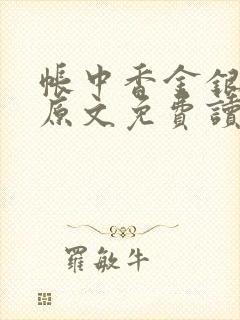 帳中香金銀
原文免費讀
羅敏牛